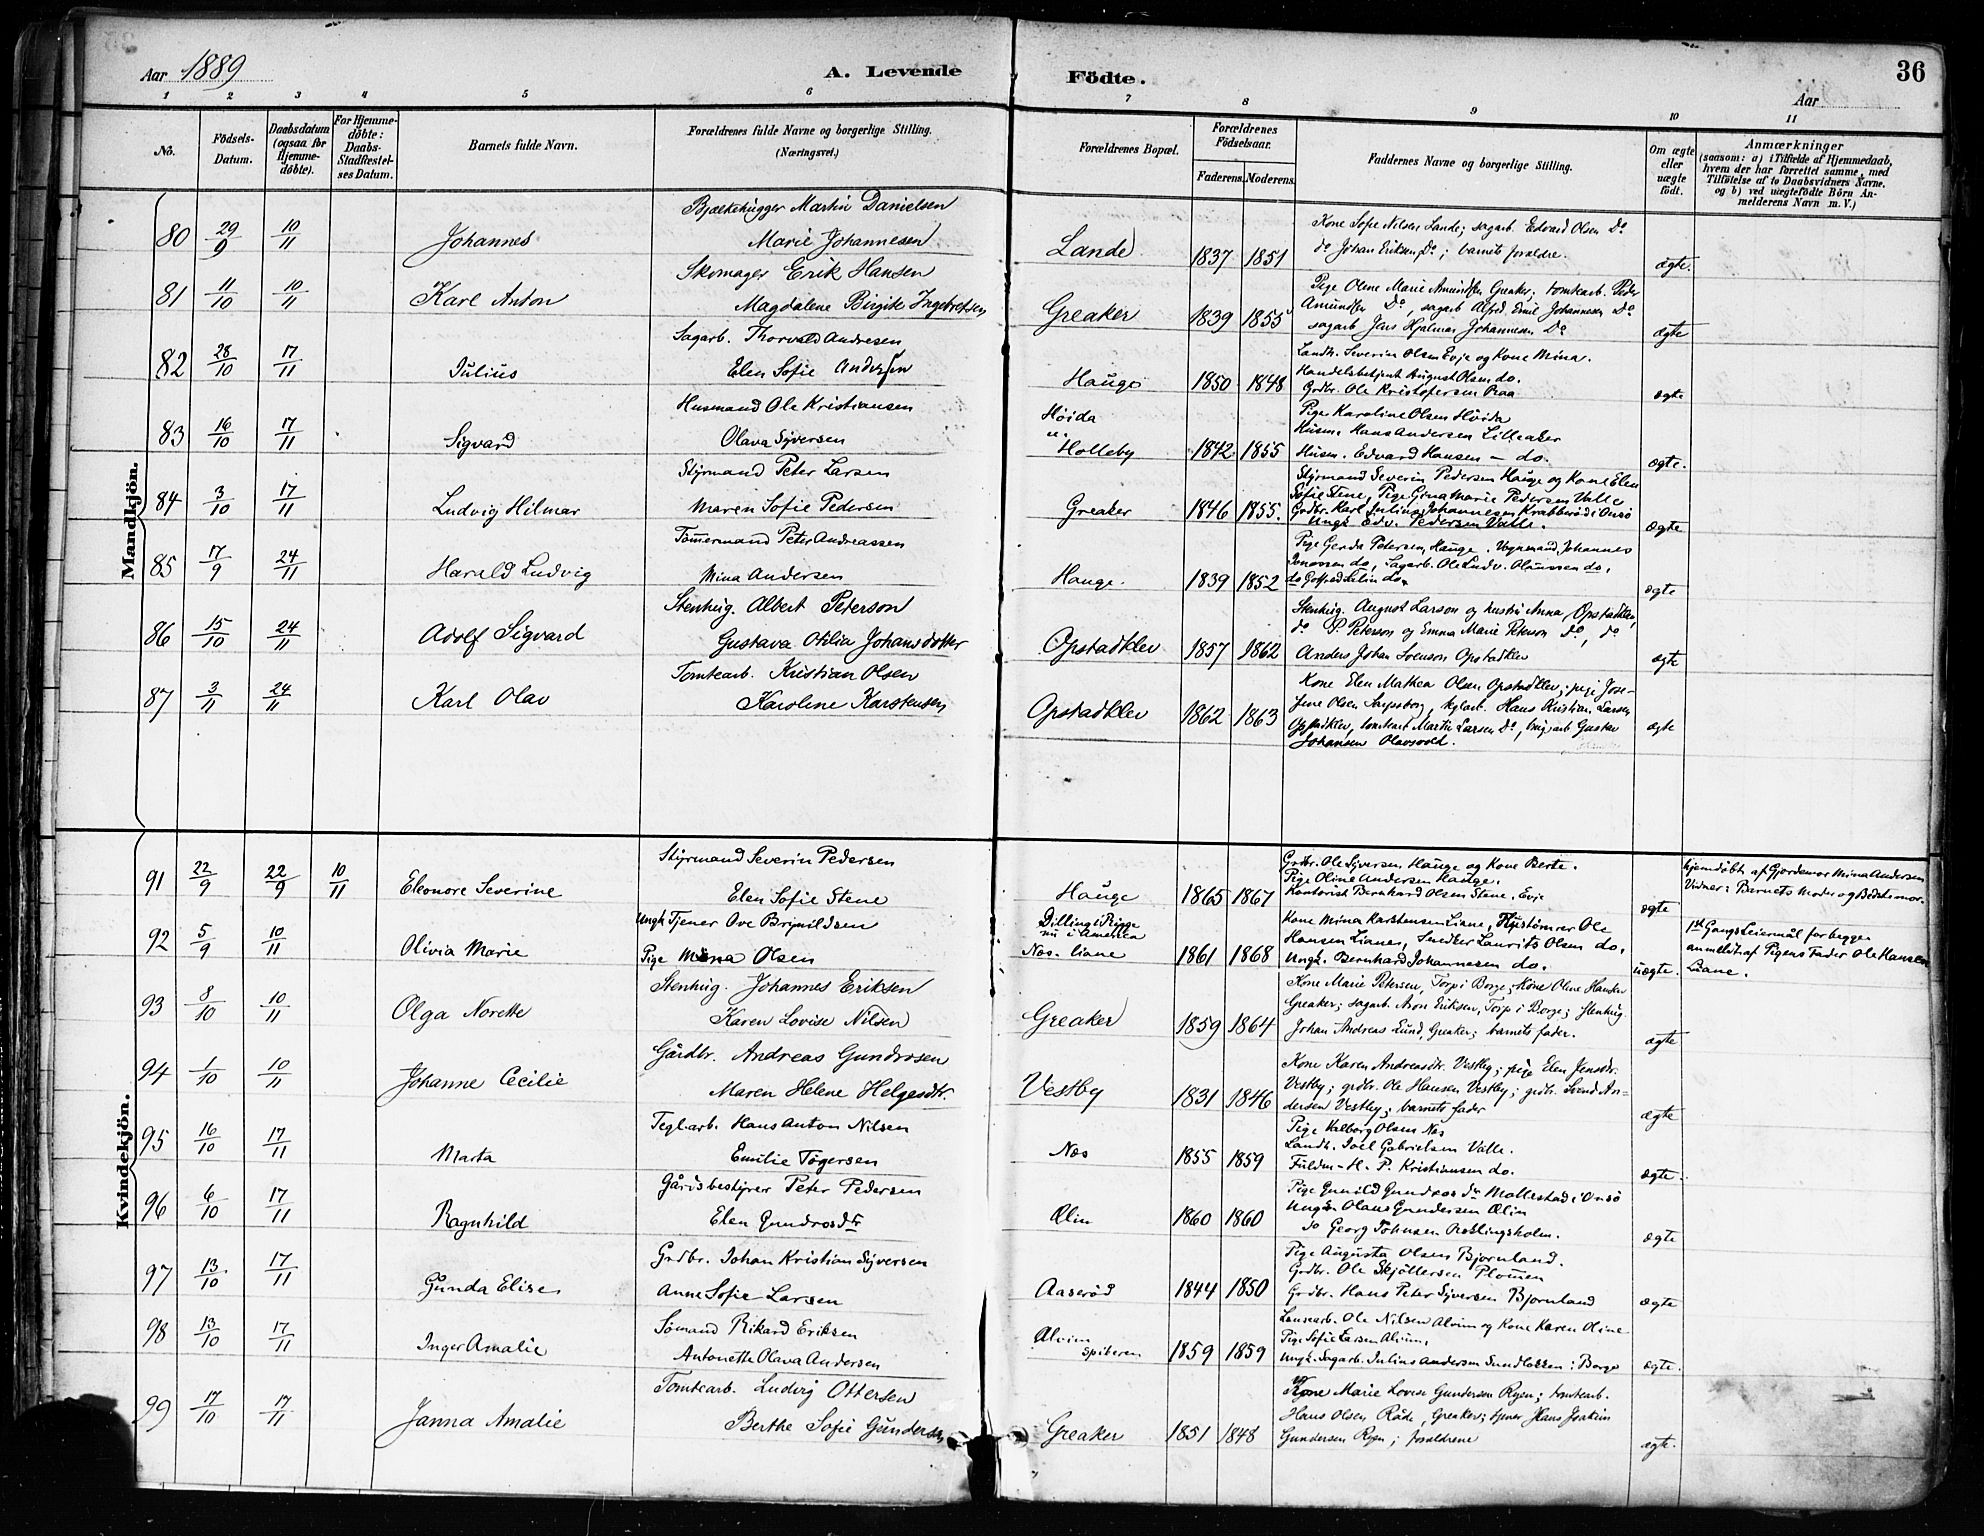 Aar 1889
A. Levende
Födte.
36
Aar
1 2 3 4 5 6 7 8 9 10 11
No.
Födsels-Datum.
Daabsdatum (ogsaa for Hjemme-döbte).
For Hjemme-döbte: Daabs-Stadfestel-ses Datum.
Barnets fulde Navn.
Forældrenes fulde Navne og borgerlige Stilling. (Næringsvei.)
Forældrenes Bopæl.
Forældrenes Födselsaar.
Faderens. Moderens.
Faddernes Navne og borgerlige Stilling.
Om ægte eller uægte födt.
Anmærkninger
(saasom: a) i Tilfælde af Hjemmedaab, hvem der har forrettet samme, med Tilföielse af to Daabsvidners Navne. og b) ved uægtefödte Börn An-melderens Navn m. V.)
Mandkjön.
80 29/9 10/11 Johannes
Bjælkehugger Martin Danielsen
Marie Johannesen
Lande 1837 1851
Kone Sofie Nilsen Lande; sagarb. Edvard Olsen Do
do Johan Eriksen Do; barnets forældre.
ægte.
81 11/10 10/11 Karl Anton
Skomager Erik Hansen
Magdalene Birgite Ingebretsen
Greaker 1839 1855
Pige Oline Marie Amundsen Greaker; tomtearb. Peder
Amundsen Do, sagarb Alfred Emil Johannesen Do
sagarb Jens Hjalmar Johannesen Do
ægte
82 28/10 17/11 Julius
Sagarb. Thorvald Andresen
Elen Sofie Andersen
Hauge 1850 1848
Landh. Severin Olsen Evje og Kone Mina.
Handelsbetjent August Olsen do.
Grdbr. Ole Kristofersen Raa
ægte
83 16/10 17/11 Sigvard
Husmand Ole Kristiansen
Olava Syversen
Höida
u.
Holleby 1842 1855
Pige Karoline Olsen Höida
Husm. Hans Andersen Lilleaker
Husm. Edvard Hansen - do.
ægte.
84 3/10 17/11 Ludvig Hilmar
Styrmand Peter Larsen
Maren Sofie Pedersen
Greaker 1846 1855.
Styrmand Severin Pedersen Hauge og Kone Elen
Sofie Stene, Pige Gina Marie Pedersen Valle
Grdbr. Karl Julius Johannesen Krabberöd i Onsö
Ungk. Edv. Pedersen Valle.
ægte
85 17/9 24/11 Harald Ludvig
Tömmermand Peter Andreassen
Mina Andersen
Hauge. 1839 1852
Pige Gerda Petersen, Hauge. Vognmand Johannes
Jonassen do, Sagarb. Ole Ludv. Olaussen do,
ægte
86 15/10 24/11 Adolf Sigvard
Stenhug. Albert Peterson
Gustava Otilia Johansdotter
Opstadklev 1857 1862
Stenhug. August Larson og hustru Anna, Opstadklev,
do P. Peterson og Emma Marie Peterson do, do
Anders Johan Svenson Opstadklev
ægte
87 3/11 24/11 Karl Olav
Tomtearb. Kristian Olsen
Karoline Karstensen
Opstadklev 1862 1863
Kone Elen Mathea Olsen Opstadklev; pige Jose-
fine Olsen Sarpsborg, Hans Kristian Larsen
Opstadklev, tomtearb Martin Larsen Do, Gustav
Johansen Olavsvold.
ægte
Kvindekjön.
91 22/9 22/9 10/11 Eleonore Severine
Styrmand Severin Pedersen
Elen Sofie Stene
Hauge 1865 1867
Grdbr. Ole Syversen Hauge og Kone Berte.
Pige Oline Andersen Hauge.
Kontorist Bernhard Olsen Stene, Evje
ægte
hjemdöbt af Gjordemor Mina Andersen
Vidner: Barnets Moder og Bedstemor.
92 5/9 10/11 Olivia Marie
Ungk. Tjener Ove Brynildsen
Pige Mina Olsen
Dilling i Rygge
nu i America
Næs. Liane 1861 1868
Kone Mina Karstensen Liane, Hustömrer Ole
Hansen Liane, Snedker Laurits Olsen do,
Ungk. Bernhard Johannesen do.
uægte.
1ste Gangs Leiermål for begge
anmeldt af Pigens Fader Ole Hansen
Liane.
93 8/10 10/11 Olga Norette
Stenhug. Johannes Eriksen
Karen Lovise Nilsen
Greaker 1859 1864
Kone Marie Petersen, Torp i Borge; Kone Oline Hansen
Greaker; sagarb. Aron Eriksen, Torp i Borge; stenhug.
Johan Andreas Lund, Greaker; barnets fader.
ægte
94 1/10 10/11 Johanne Cecilie
Gårdbr. Andreas Gundrosen
Maren Helene Helgesdtr.
Vestby 1831 1846
Kone Karen Andreasdtr. Vestby; pige Elen Jensdtr.
Vestby; grdbr. Ole Hansen Vestby; grdbr. Svend An-
dersen Vestby; barnets fader
ægte
95 16/10 17/11 Marta
Teglarb. Hans Anton Nilsen
Emilie Tögersen
Næs 1855 1859
Pige Valborg Olsen Næs
Landh. Joel Gabrielsen Valle.
Fuldm- H. P. Kristiansen do.
ægte.
96 6/10 17/11 Ragnhild
Gårdsbestyrer Peter Pedersen
Elen Gundrosdtr
Ælin 1860 1860
Pige Gunild Gundrosdtr Mollestad i Onsö
Ungk. Olaus Gundersen Ælin
do Georg Johnsen
ægte
97 13/10 17/11 Gunda Elise
Grdbr. Johan Kristian Syversen
Anne Sofie Larsen
Aaseröd 1844 1850
Pige Augusta Olsen Bjørnland.
Grdbr. Ole Skjöllersen Ploumen
Grdbr. Hans Peter Syversen Bjørnland
ægte
98 13/10 17/11 Inger Amalie
Sömand Rikard Eriksen
Antonette Olava Andersen
Alvim
Spikeren 1859 1859
Lensearb. Ole Nilsen Alvim og Kone Karen Oline
Pige Sofie Larsen Alvim,
Ungk. Sagarb. Julius Andersen Sundlökken i Borge
ægte.
99 17/10 17/11 Janna Amalie
Tomtearb. Ludvig Ottersen
Berthe Sofie Gundersen
Greaker 1851 1848
Kone Marie Lovise Gundersen Ryen; tomtearb.
Hans Olsen Råde, Greaker; tjener Hans Joakim
Gundersen Ryen; forældrene
ægte.